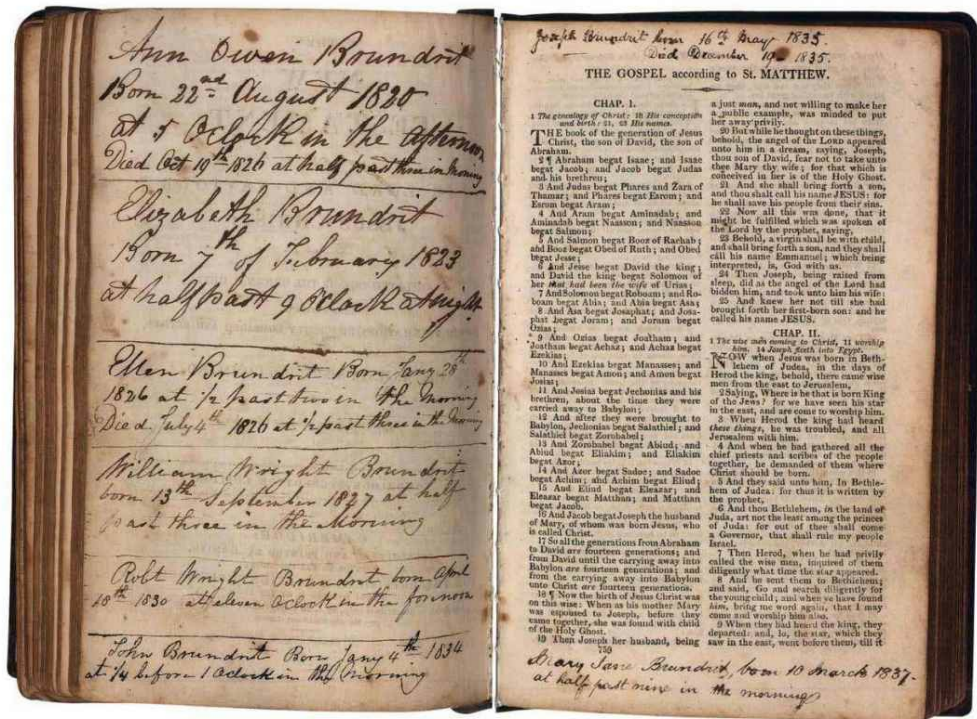 Ann Owen Brundrit
Born 22nd August 1820
at 5 Oclock in the Afternoon
Died Oct 19th 1826 at half past three in Morning
Elizabeth Brundrit
Born 7th of February 1823
at half past 9 Oclock at night
Ellen Brundrit Born Jany 28th
1826 at 1/2 past two in the Morning
Died July 4th 1826 at 1/2 past three in the Morning
William Wright Brundrit
born 13th September 1827 at half
past three in the Morning
Robt Wright Brundrit born April
18th 1830 at eleven Oclock in the forenoon
John Brundrit Born Jany 4th 1834
at 1/4 before 1 Oclock in the Morning
Joseph Brundrit born 16th May 1835.
Died December 19 1835.
THE GOSPEL according to St. MATTHEW.
CHAP. I.
1 The genealogy of Christ: 18 His conception
and birth: 21, 23 His names.
THE book of the generation of Jesus
Christ, the son of David, the son of
Abraham.
2 ¶ Abraham begat Isaac; and Isaac
begat Jacob; and Jacob begat Judas
and his brethren;
3 And Judas begat Phares and Zara of
Thamar; and Phares begat Esrom; and
Esrom begat Aram;
4 And Aram begat Aminadab; and
Aminadab begat Naasson; and Naasson
begat Salmon;
5 And Salmon begat Booz of Rachab;
and Booz begat Obed of Ruth; and Obed
begat Jesse;
6 And Jesse begat David the king;
and David the king begat Solomon of
her that had been the wife of Urias;
7 And Solomon begat Roboam; and Ro-
boam begat Abia; and Abia begat Asa;
8 And Asa begat Josaphat; and Josa-
phat begat Joram; and Joram begat
Ozias;
9 And Ozias begat Joatham; and
Joatham begat Achaz; and Achaz begat
Ezekias;
10 And Ezekias begat Manasses; and
Manasses begat Amon; and Amon begat
Josias;
11 And Josias begat Jechonias and his
brethren, about the time they were
carried away to Babylon;
12 And after they were brought to
Babylon, Jechonias begat Salathiel; and
Salathiel begat Zorobabel;
13 And Zorobabel begat Abiud; and
Abiud begat Eliakim; and Eliakim
begat Azor;
14 And Azor begat Sadoc; and Sadoc
begat Achim; and Achim begat Eliud;
15 And Eliud begat Eleazar; and
Eleazar begat Matthan; and Matthan
begat Jacob.
16 And Jacob begat Joseph the husband
of Mary, of whom was born Jesus, who
is called Christ.
17 So all the generations from Abraham
to David are fourteen generations; and
from David until the carrying away into
Babylon are fourteen generations; and
from the carrying away into Babylon
unto Christ are fourteen generations.
18 ¶ Now the birth of Jesus Christ was
on this wise: When as his mother Mary
was espoused to Joseph, before they
came together, she was found with child
of the Holy Ghost.
19 Then Joseph her husband, being
a just man, and not willing to make her
a public example, was minded to put
her away privily.
20 But while he thought on these things,
behold, the angel of the LORD appeared
unto him in a dream, saying, Joseph,
thou son of David, fear not to take unto
thee Mary thy wife; for that which is
conceived in her is of the Holy Ghost.
21 And she shall bring forth a son,
and thou shalt call his name JESUS: for
he shall save his people from their sins.
22 Now all this was done, that it
might be fulfilled which was spoken of
the Lord by the prophet, saying,
23 Behold, a virgin shall be with child,
and shall bring forth a son, and they shall
call his name Emmanuel; which being
interpreted, is, God with us.
24 Then Joseph, being raised from
sleep, did as the angel of the Lord had
bidden him, and took unto him his wife:
25 And knew her not till she had
brought forth her first-born son: and he
called his name JESUS.
CHAP. II.
1 The wise men coming to Christ, 11 worship
him. 14 Joseph fleeth into Egypt.
NOW when Jesus was born in Beth-
lehem of Judea, in the days of
Herod the king, behold, there came wise
men from the east to Jerusalem,
2 Saying, Where is he that is born King
of the Jews? for we have seen his star
in the east, and are come to worship him.
3 When Herod the king had heard
these things, he was troubled, and all
Jerusalem with him.
4 And when he had gathered all the
chief priests and scribes of the people
together, he demanded of them where
Christ should be born.
5 And they said unto him, In Bethle-
hem of Judea: for thus it is written by
the prophet,
6 And thou Bethlehem, in the land of
Juda, art not the least among the princes
of Juda: for out of thee shall come
a Governor, that shall rule my people
Israel.
7 Then Herod, when he had privily
called the wise men, inquired of them
diligently what time the star appeared.
8 And he sent them to Bethlehem;
and said, Go and search diligently for
the young child; and when ye have found
him, bring me word again, that I may
come and worship him also.
9 When they had heard the king, they
departed: and, lo, the star, which they
saw in the east, went before them, till it
759
Mary Jane Brundrit, born 10 March 1837.
at half past nine in the morning